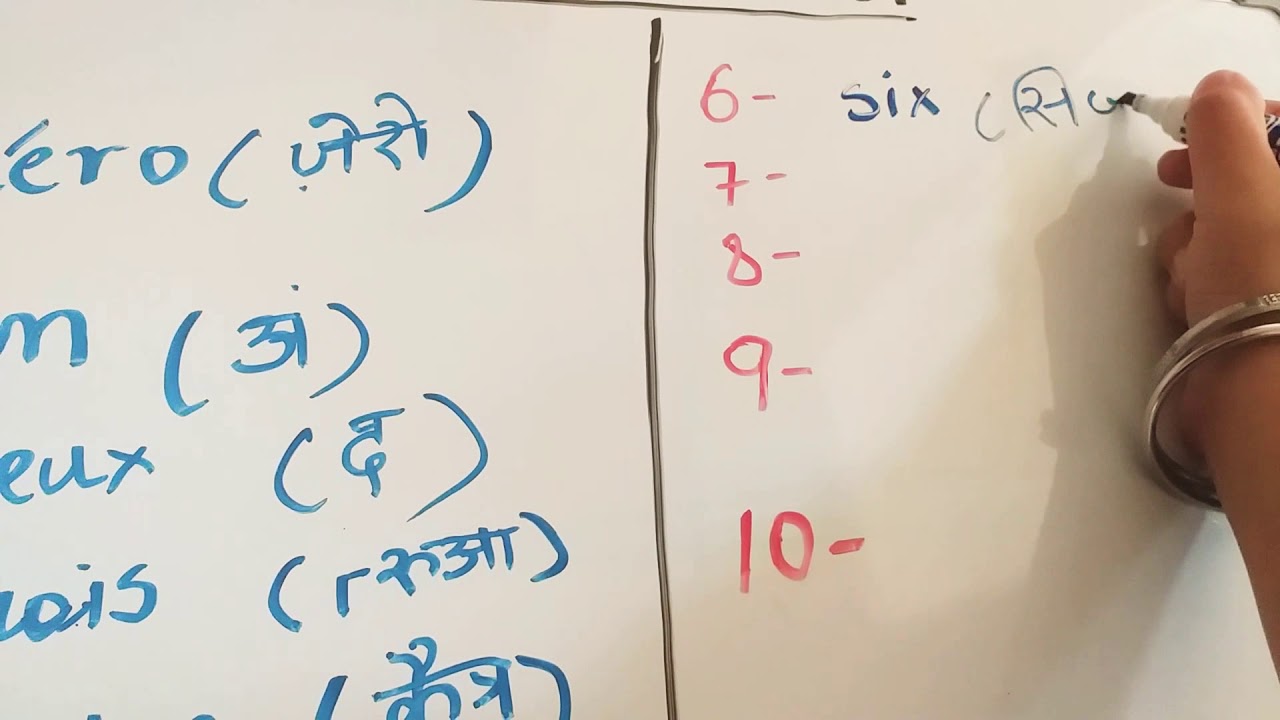 éro (ज़ेरो)
(अं)
eux (द)
ois (त्रुआ)
(कैत्र)
6- six (सि
7-
8-
9-
10-